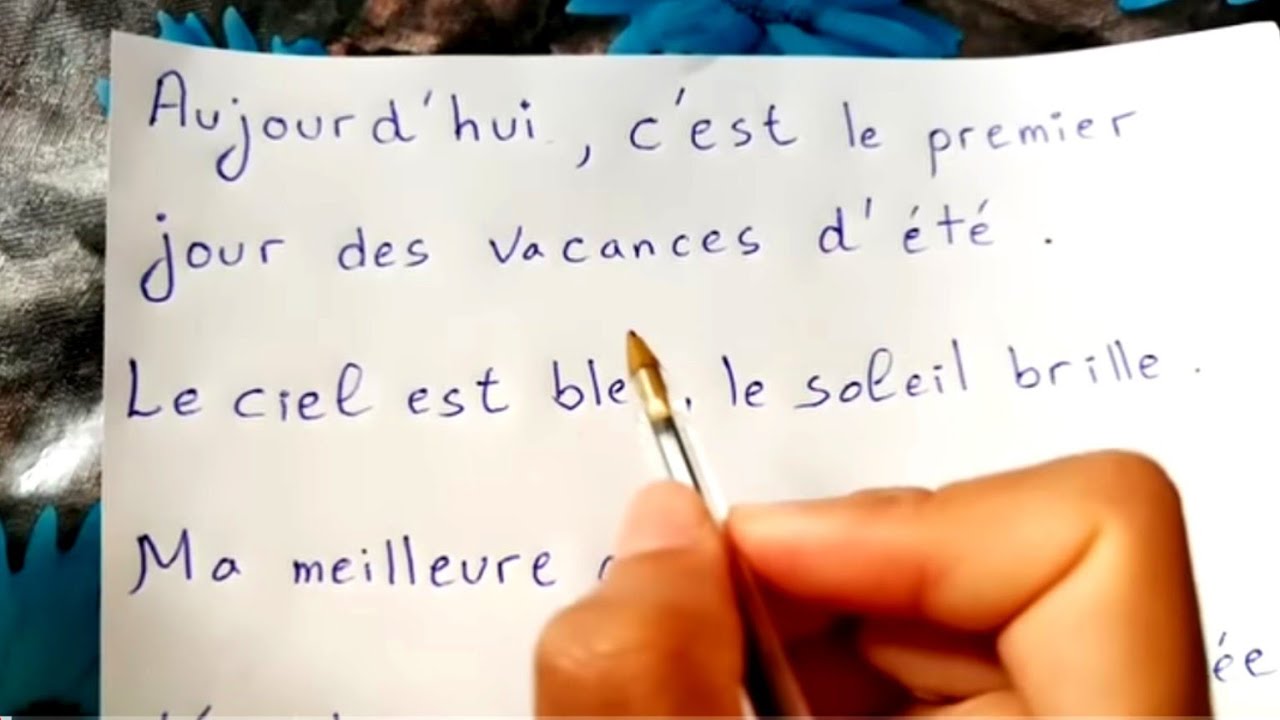 Aujourd'hui, c'est le premier
jour des vacances d'été.
Le ciel est , le soleil brille.
Ma meilleure